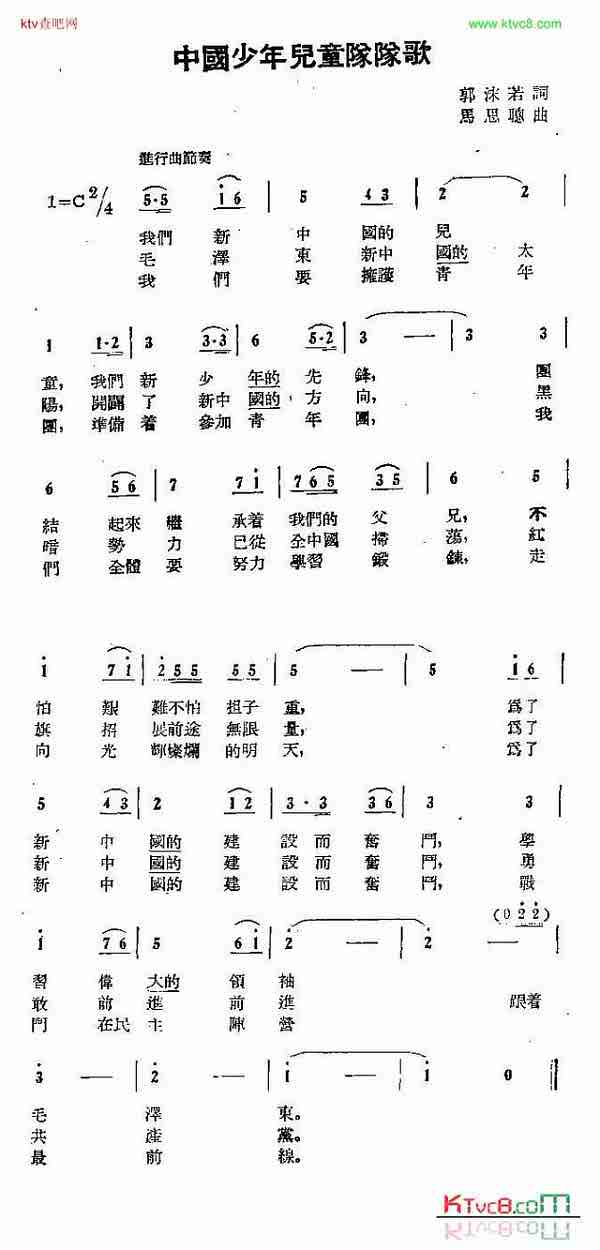 ktv查吧网
www.ktvc8.com
中國少年兒童隊隊歌
郭沫若詞
馬思聰曲
進行曲節奏
1=C 2/4
5·5 i 6 | 5 4 3 | 2 2 |
我們新中國的兒
毛澤東新中國的太
我們要擁護青年
1 1·2 | 3 3·3 | 6 3 5 | 3 — | 3 3 |
童，我們新少年的先鋒，團
陽，開闢了新中國的方向，黑
團，準備着參加青年團，我
6 5 6 | 7 7 i | 7 6 5 | 6 5 |
結起來繼承着我們的父兄，不
暗勢力已從全中國掃蕩，紅
們全體要努力學習鍛鍊，走
i 7 i | 2 5 5 5 5 | 5 — | 5 i 6 |
怕艱難不怕担子重，爲了
旗招展前途無限量，爲了
向光輝燦爛的明天，爲了
5 4 3 | 2 1 2 | 3·3 3 6 | 3 3 |
新中國的建設而奮鬥，學
新中國的建設而奮鬥，勇
新中國的建設而奮鬥，戰
(0 2 2)
i 7 6 | 5 6 i | 2 — | 2 — |
習偉大的領袖
敢前進前進 跟着
鬥在民主陣營
3 — | 2 — | i — | i 0 ‖
毛澤東。
共產黨。
最前線。
KTvc8.com